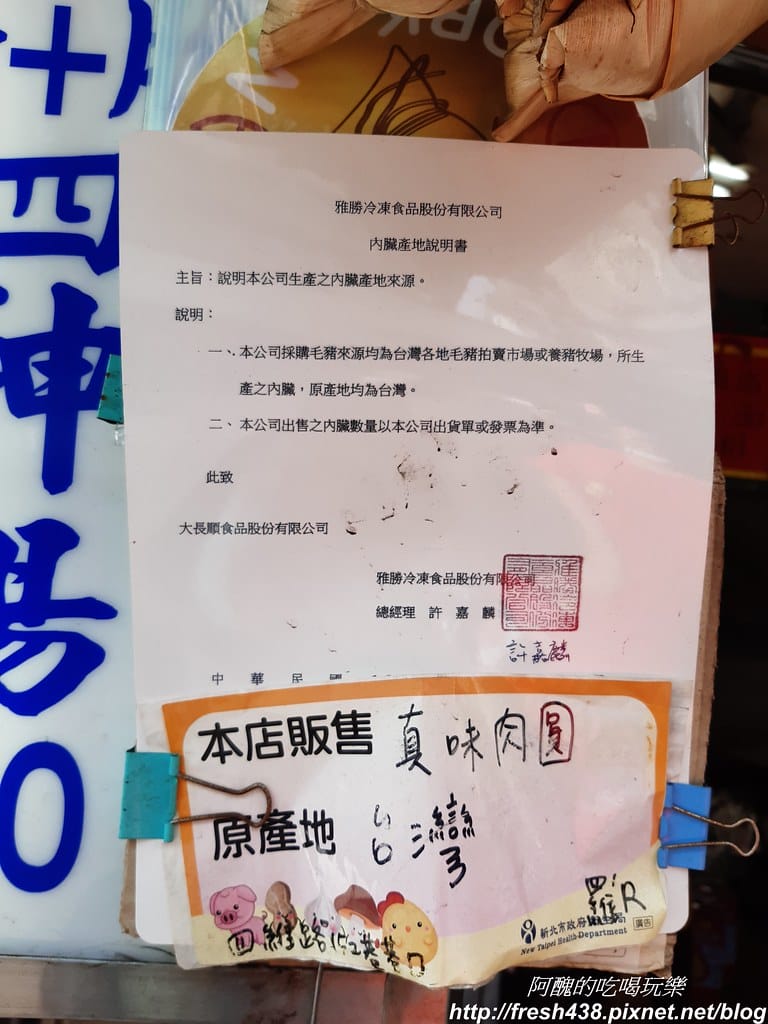 四神湯
雅勝冷凍食品股份有限公司
內臟產地說明書
主旨：說明本公司生產之內臟產地來源。
說明：
一、本公司採購毛豬來源均為台灣各地毛豬拍賣市場或養豬牧場，所生
產之內臟，原產地均為台灣。
二、本公司出售之內臟數量以本公司出貨單或發票為準。
此致
大長順食品股份有限公司
雅勝冷凍食品股份有限公司
總經理 許嘉麟
許嘉麟
中華民國
本店販售 真味肉圓
原產地 台灣
新北市政府衛生局 廣告
New Taipei Health Department
阿醜的吃喝玩樂
http://fresh438.pixnet.net/blog